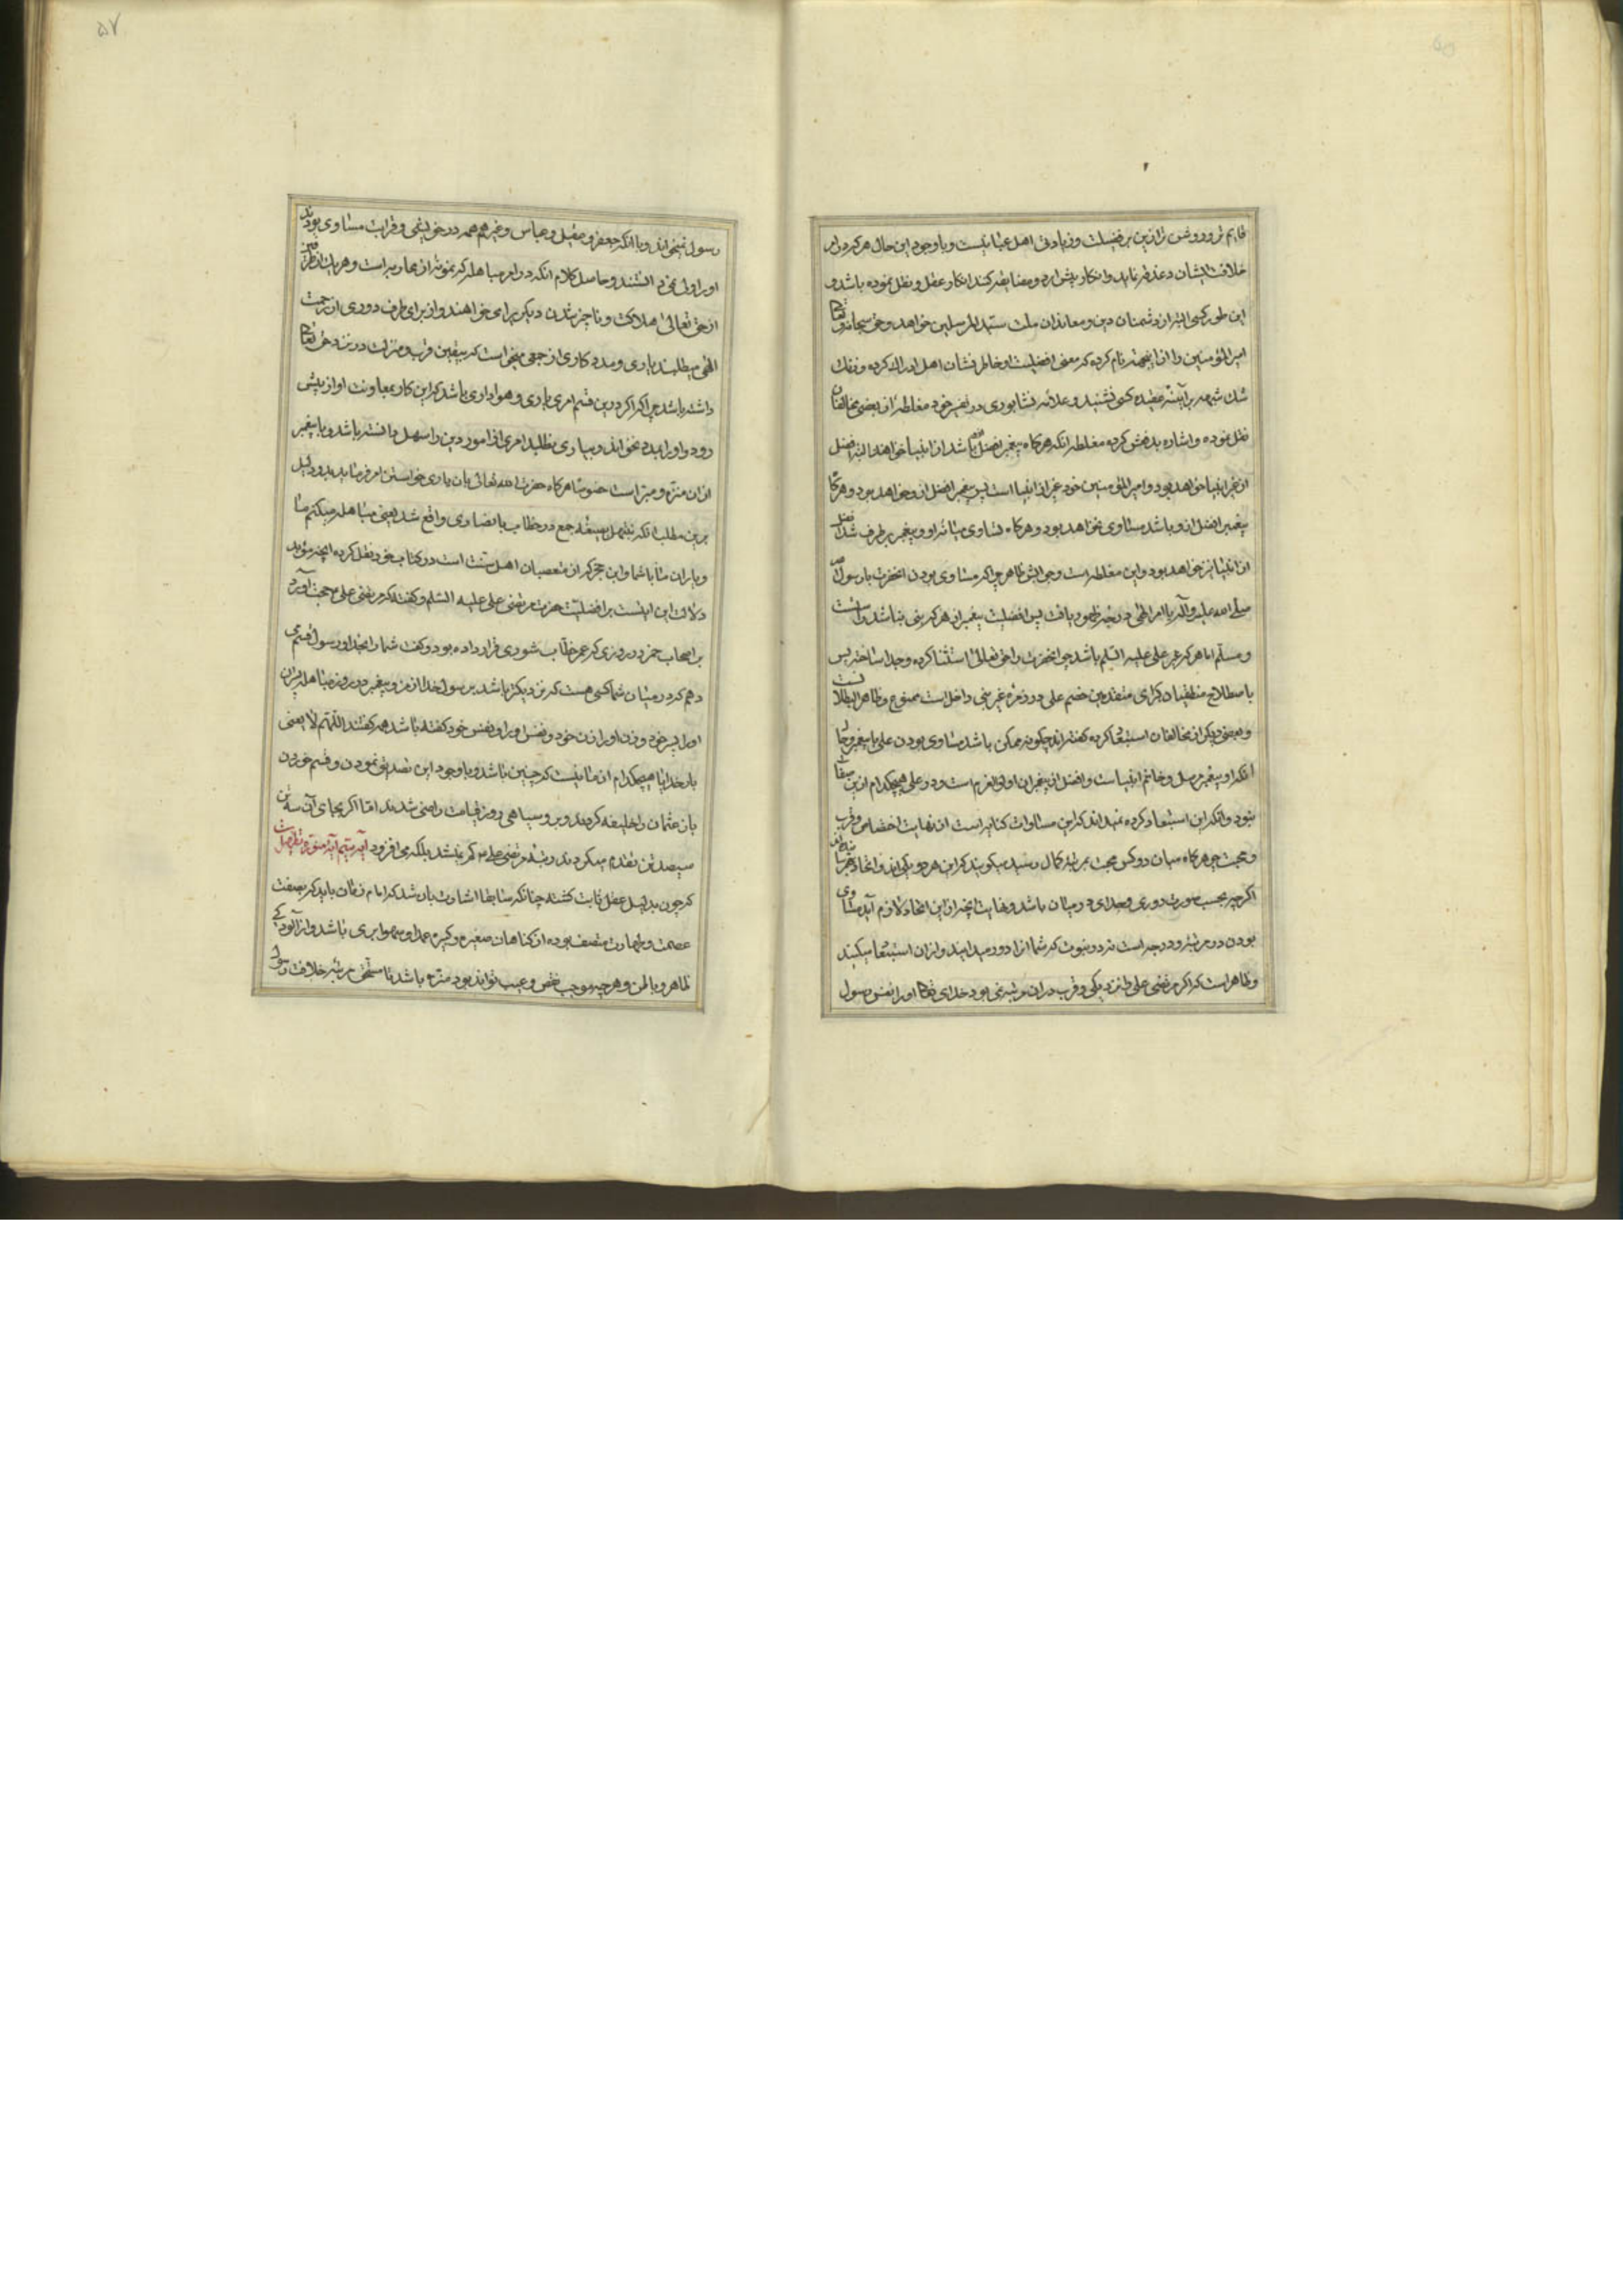 قایم تر و روشن تر ازین بر فضیلت و زیادتی اهل عبا نیست و با وجود این حال هر که در امر
خلافت ایشان دغدغه نماید و انکار پیش آرد و مضایقه کند انکار عقل و نقل نموده باشد و
این طور کسی البته از دشمنان دین و معاندان ملت سید المرسلین خواهد و حق سبحانه و تعالی
امیر المؤمنین را از اینجهة نام کرده که معنی افضلیت او خاطر نشان اهل ادراک کرده و زنک
شک شبهه بر آیینه عقیده کسی ننشیند و علامه نشابوری در تفسیر خود مغالطه از بعضی مخالفان
نقل نموده و اشاره بدفعش کرده مغالطه انکه هرکاه پیغمبر افضل باشد از انبیا خواهد البته افضل
از غیر انبیا خواهد بود و امیر المؤمنین خود غیر از انبیا است پس پیغمبر افضل ازو خواهد بود و هرکا
پیغمبر افضل ازو باشد مساوی نخواهد بود و هرکاه تساوی میانه او و پیغمبر بر طرف شد افضل
از انبیا نیز نخواهد بود و این مغالطه است و جوابش ظاهر چرا که مساوی بودن انحضرت با رسول
صلی الله علیه و آله با امر الهی درجه ظهور یافت پس افضلیت پیغمبر از هر که نبی نباشد راست
و مسلم اما هر که غیر علی علیه السلم باشد چرا انحضرت را حق تعالی استثنا کرده و جدا ساخته پس
باصطلاح منطقیان کبرای متقدمین خصم علی در زمره غیر نبی داخل است ممنوع و ظاهر البطلانست
و بعضی دیکر از مخالفان استبعاد کرده کفته اند چکونه ممکن باشد مساوی بودن علی با پیغمبر و حال
انکه او پیغمبر مرسل و خاتم انبیاست و افضل از پیغمبران اولی العزم است و در علی هیچکدام ازین صفا
نبود و انکه این استبعاد کرده نمیداند که این مساوات کنایه است از نهایت اختصاص و قرب
و محبت چو هرکاه میان دو کس محبت بمرتبه کمال رسید میکویند که این هر دو یکی اند و اتحاد
اکرچه بحسب صورت دوری و جدای در میان باشد و نهایت انچه ازین اتحاد لازم آید مساوی
بودن در مرتبه و درجه است نه در نبوت که شما انرا دور میدانید و ازان استبعاد میکنید
و ظاهر است که اکر مرتضی علی را نزدیکی و قرب بدان مرتبه نمی بود خدای تعالی او را نفس رسول
رسول نمیخواند و با انکه جعفر و عقیل و عباس و غیرهم همه در خویشی و قرابت مساوی بودند
او را اولی نمی دانستند و حاصل کلام انکه در امر مباهله که نمونه از محاربه است و هر یک از طرفین
از حق تعالی هلاکت و ناچیز شدن دیکریرا می خواهند و از برای طرف دوری از رحمت
الهی میطلبند یاری و مدد کاری از جمعی میخواست که بیقین قرب و منزلت در نزد حق تعالی
داشته باشد چرا که اکر درین قسم امری یاری و هواداری باشد که این کار بمعاونت او از پیش
رود و او را بمدد نخواند و بیاری نطلبد امری از امور دین را سهل دانسته باشد و پیغمبر
ازان منزه و مبرا است خصوصا هرکاه حضرت الله تعالی بان یاری خواستن امر فرماید و دلیل
برین مطلب انکه نبتهل بصیغه جمع در خطاب با نصاری واقع شد یعنی مباهله میکنم ما
و یاران ما با شما و ابن حجر که از متعصبان اهل سنت است در کتاب خود نقل کرده انچه مؤید
دلالت این ایتست بر افضلیت حضرت مرتضی علی علیه السلم و کفته که مرتضی علی حجت آورد
بر اصحاب خمر در روزی که عمر خطاب شوری قرار داده بود و کفت شما را بخدا و رسول قسم می
دهم که در میان شما کسی هست که نزدیکتر باشد برسول خدا از من و پیغمبر در روز مباهله پسران
او را پسر خود و زن او را زن خود و نفس او را نفس خود کفته باشد همه کفتند اللهم لا یعنی
بار خدایا هیچکدام از ما نیست که چنین باشد و با وجود این تصدیق نمودن و قسم خوردن
باز عثمان را خلیفه کردند و برو سیاهی روز قیامت راضی شدند اما اکر بجای آن سه تن
سیصد تن تقدم میکردند رتبه مرتضی علی کم نباشد بلکه می افزود
که چون بدلیل عقل ثابت کشته چنانکه سابقا اشارت بان شد که امام زمان باید که بصفت
عصمت و طهارت متصف بوده از کناهان صغیره و کبیره عمدا و سهوا بری باشد و از آلودکی
ظاهر و باطن و هرچه موجب نقص و عیب تواند بود منزه باشد تا مستحق مرتبه خلافت رسول